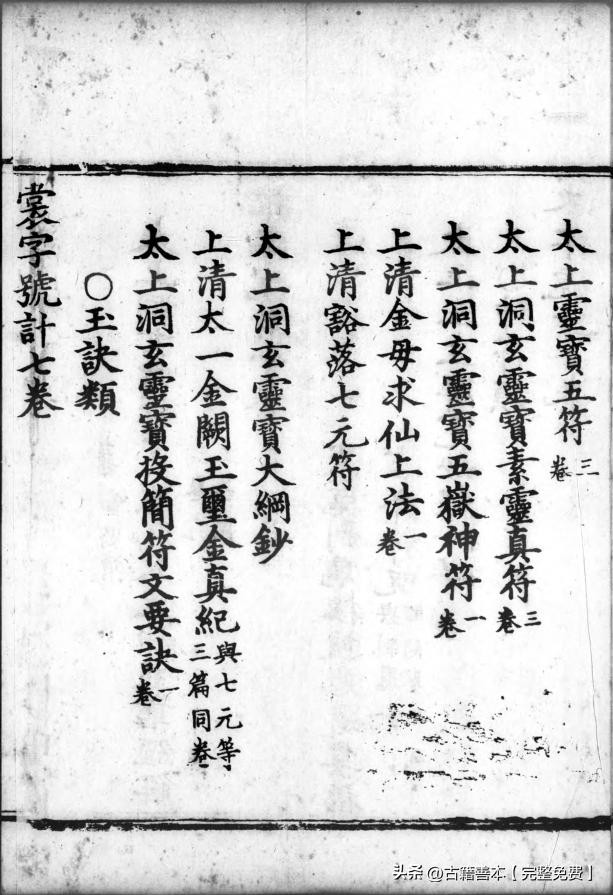 太上靈寶五符三卷
太上洞玄靈寶素靈真符三卷
太上洞玄靈寶五嶽神符一卷
上清金母求仙上法一卷
上清豁落七元符
太上洞玄靈寶大綱鈔
上清太一金闕玉璽金真紀與七元等三篇同卷
太上洞玄靈寶投簡符文要訣一卷
○玉訣類
裳字號計七卷
头条 @古籍善本【完整免费】